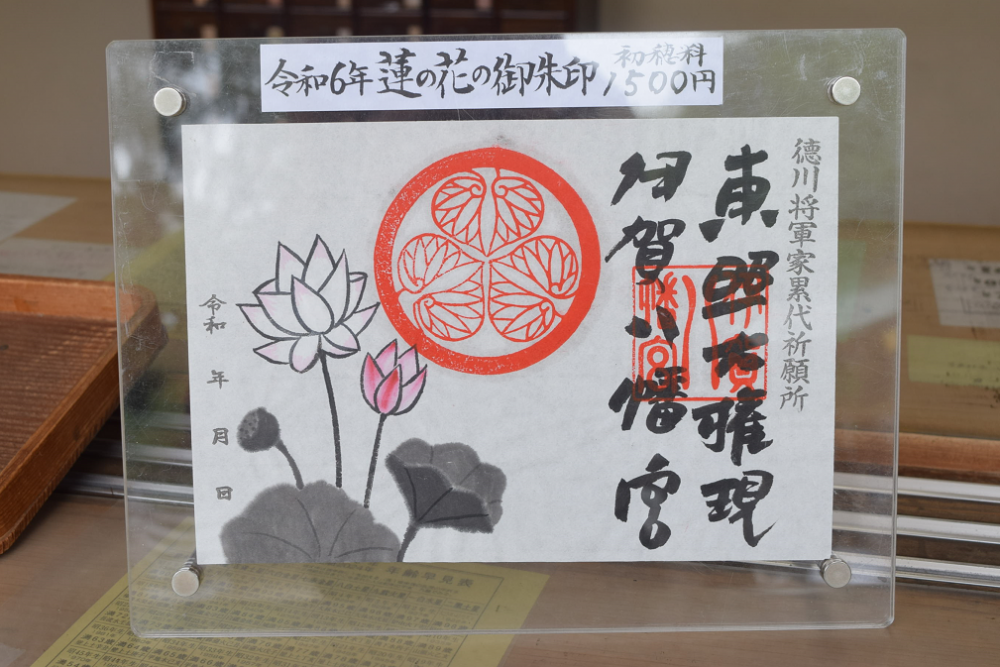 令和6年 蓮の花の御朱印
初穂料
1500円
徳川将軍家累代祈願所
東照大権現
伊賀八幡宮
令和 年 月 日